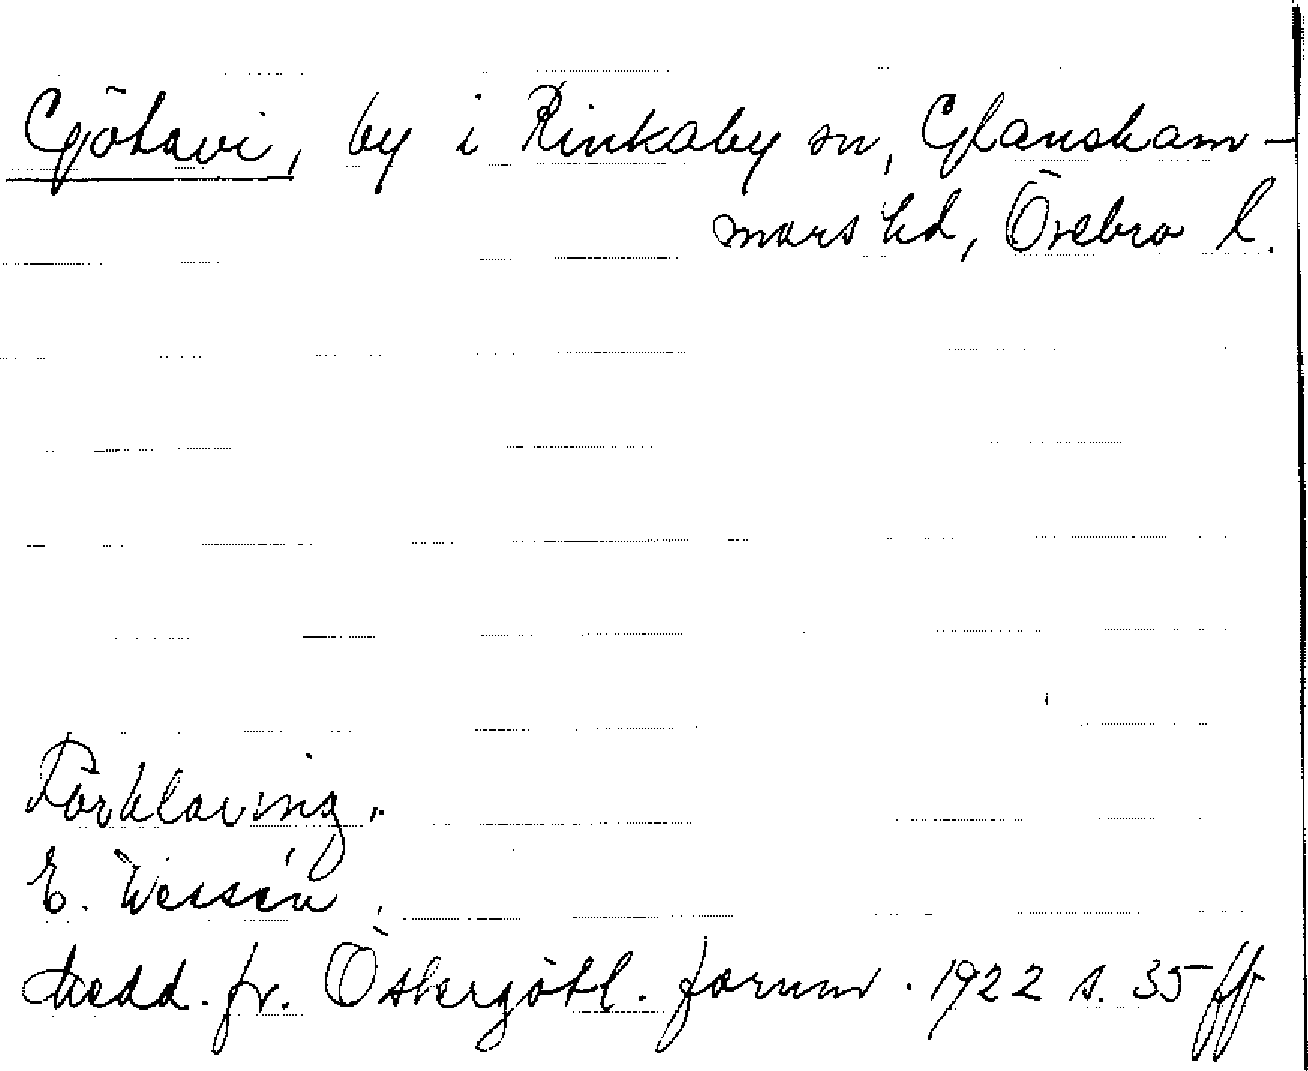 Götavi, by i Rinkaby sn, Glansham-
mars hd, Örebro l.
Förklaring.
E. Wessén,
Medd. fr. Östergötl. fornm. 1922 s. 35 ff